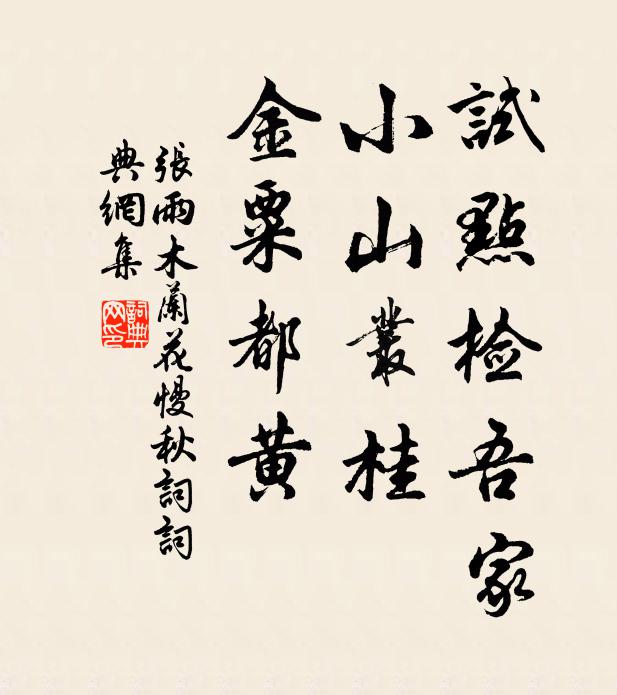 試點檢吾家
小山叢桂
金粟都黃
張雨木蘭花慢秋詞詞
典網集
詞典
网印